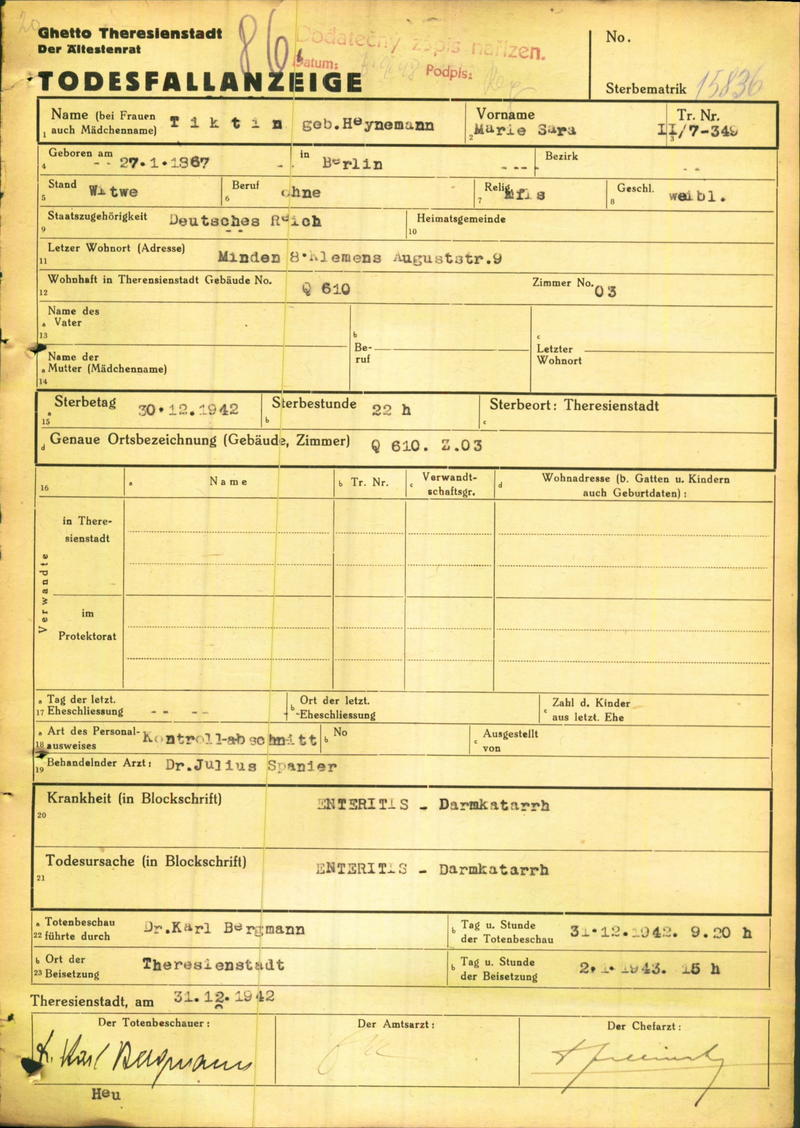 Ghetto Theresienstadt
Der Ältestenrat
TODESFALLANZEIGE
86
Dodatečný zápis nařízen.
Datum:
Podpis:
No.
Sterbematrik 15836
Name (bei Frauen auch Mädchenname) Tiktin geb.Heynemann
1
Vorname Marie Sara
2
Tr. Nr. II/7-348
3
Geboren am -- 27.1.1867
4
in Berlin
Bezirk
Stand Witwe
5
Beruf ohne
6
Relig.
7
Geschl. weibl.
8
Staatszugehörigkeit Deutsches Reich
9
Heimatsgemeinde
10
Letzer Wohnort (Adresse) Minden Klemens Auguststr.9
11
Wohnhaft in Theresienstadt Gebäude No. Q 610
12
Zimmer No. 03
Name des Vater
a
13
Name der Mutter (Mädchenname)
a
14
b
Be-
ruf
c
Letzter
Wohnort
Sterbetag 30.12.1942
a
15
Sterbestunde 22 h
b
Sterbeort: Theresienstadt
c
d Genaue Ortsbezeichnung (Gebäude, Zimmer) Q 610. Z.03
16
a Name
b Tr. Nr.
c Verwandt-
schaftsgr.
d Wohnadresse (b. Gatten u. Kindern
auch Geburtdaten) :
Verwandte
in There-
sienstadt
im
Protektorat
a Tag der letzt.
17 Eheschliessung -- --
b Ort der letzt.
Eheschliessung
c Zahl d. Kinder
aus letzt. Ehe
a Art des Personal-
18 ausweises Kontroll-abschnitt
b No
c Ausgestellt
von
19 Behandelnder Arzt: Dr.Julius Spanier
Krankheit (in Blockschrift) ENTERITIS - Darmkatarrh
20
Todesursache (in Blockschrift) ENTERITIS - Darmkatarrh
21
a Totenbeschau
22 führte durch Dr.Karl Bergmann
b Tag u. Stunde
der Totenbeschau 31.12.1942. 9.20 h
b Ort der
23 Beisetzung Theresienstadt
b Tag u. Stunde
der Beisetzung 2.1.1943. 15 h
Theresienstadt, am 31.12.1942
Der Totenbeschauer :
Der Amtsarzt :
Der Chefarzt :
Dr. Karl Bergmann
Heu